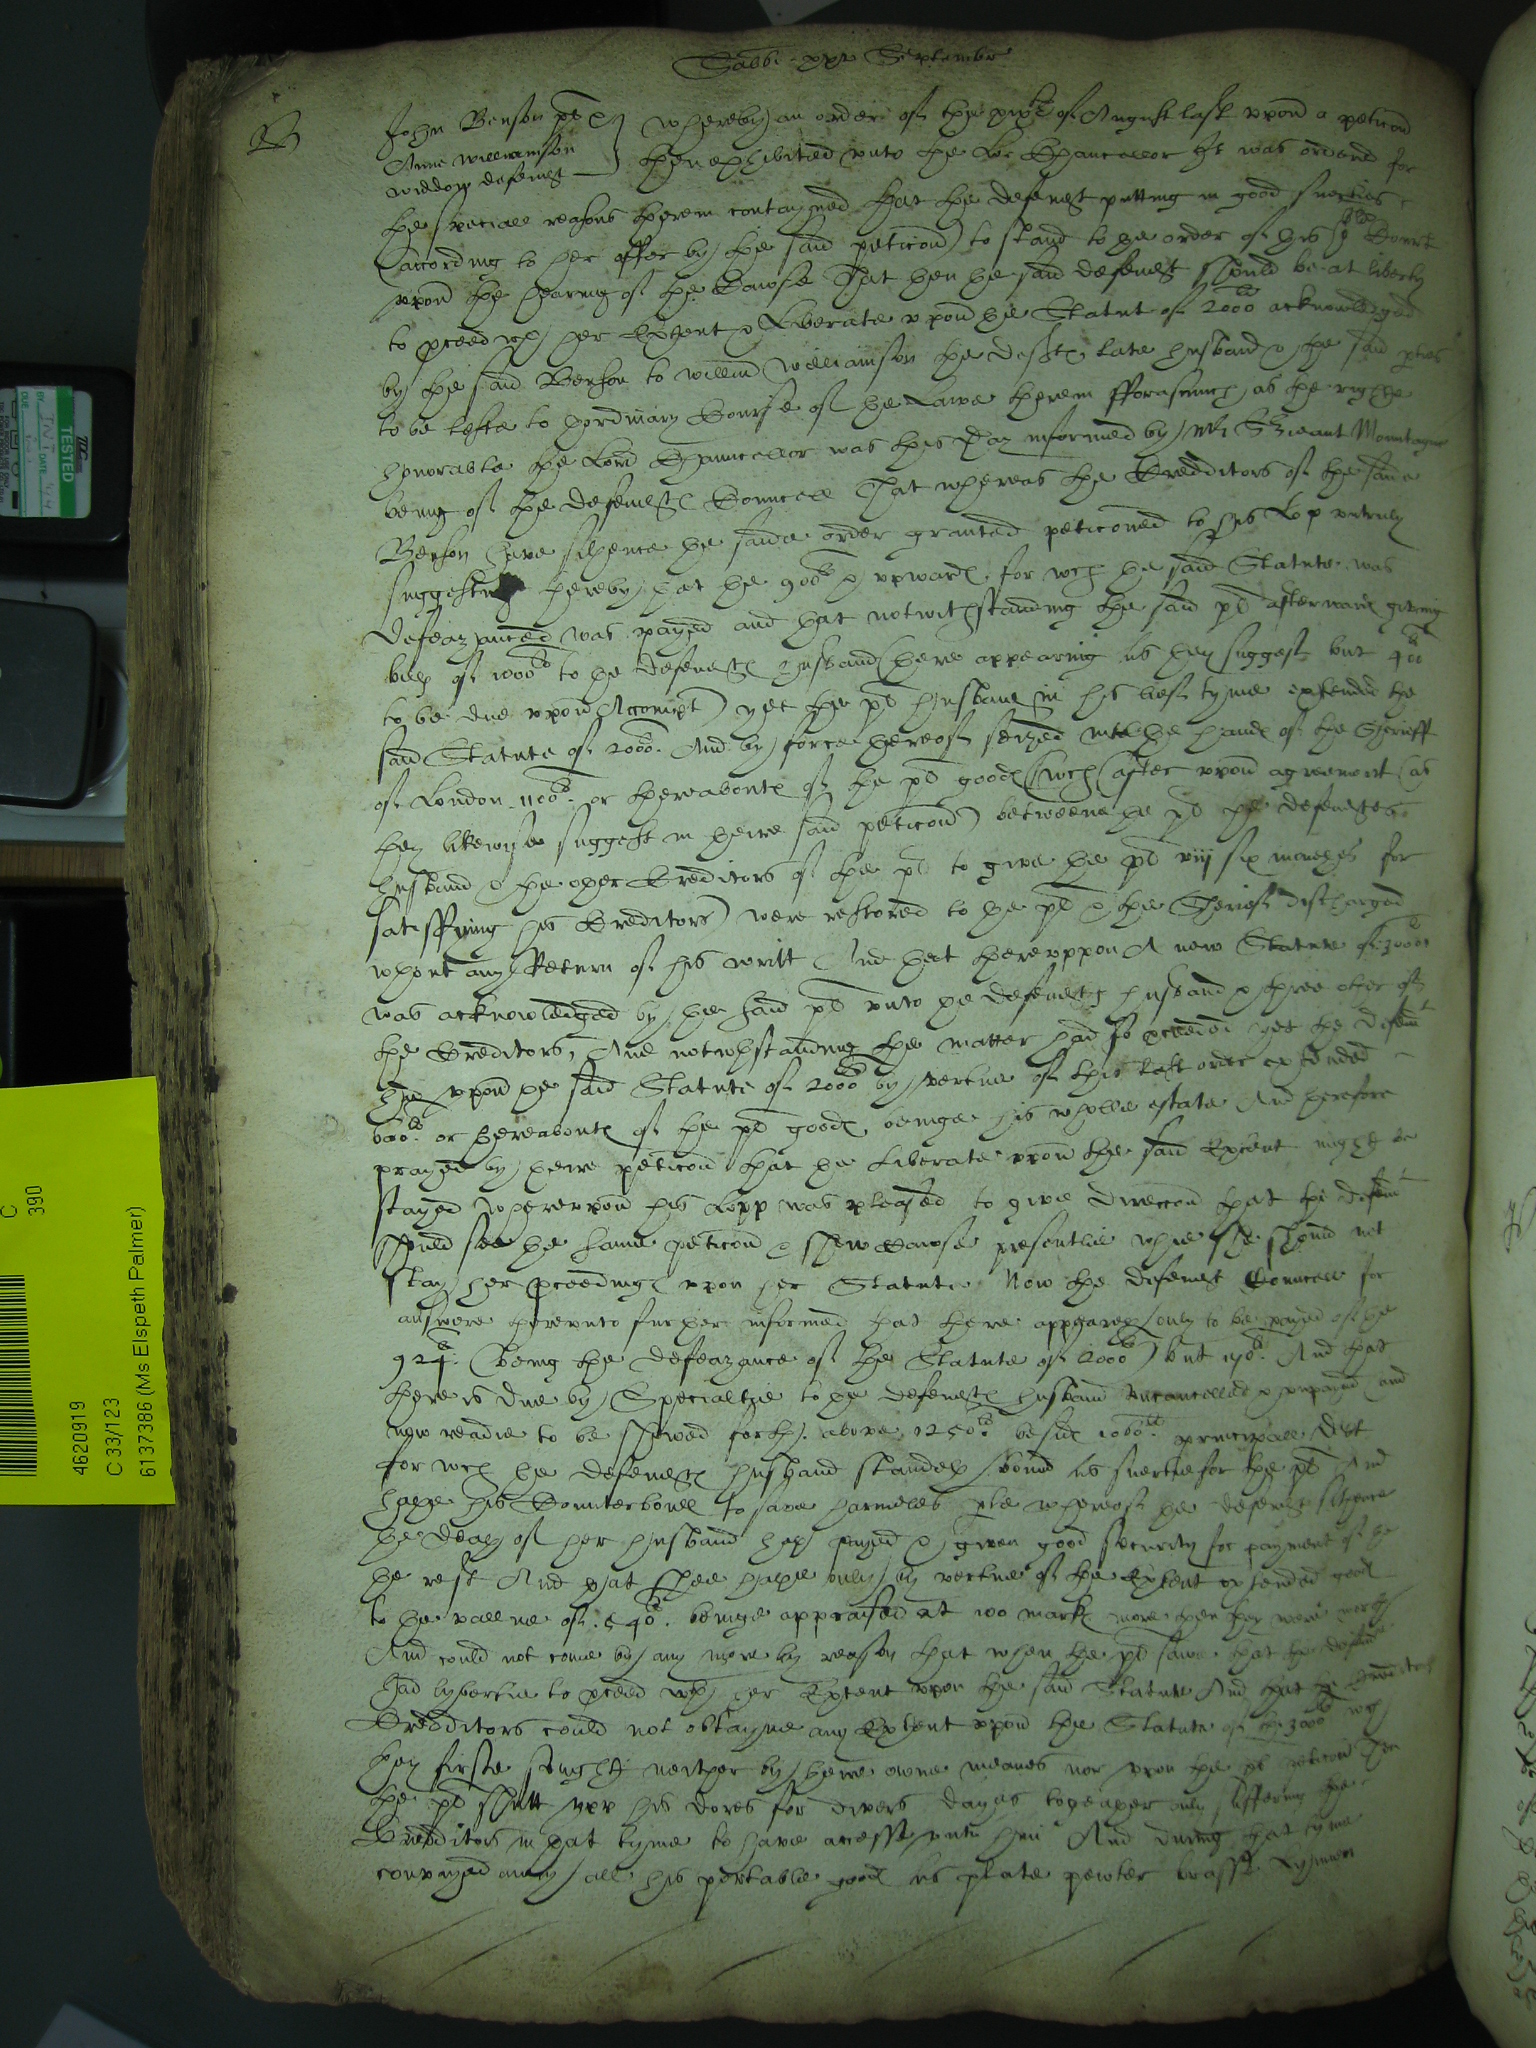 Sabbi xxx Septembr
John Benson pl
Anne Williamson
widdow defendt
Whereby an order of the xvith of August last upon a peticon
there exhibited unto the Lo: Chancellor It was ordered for
the speciall reasons therein contayned That the defendt putting in good suerties
(according to her offer by the said peticon) to stand to the order of this Court
upon the hearing of the Cawse That then the said defendt should be at liberty
to pceed wth her Extent & Liberate upon the Statut of 2000li acknowledged
by the said Benson to Willm Williamson the defts late husband & the said pties
to be lefte to thordinary Course of the Lawe therein fforasmuch as the right
honorable the Lord Chauncellor was this day informed by Mr Sieant Mountague
being of the defendts Councell That whereas the Credditors of the said
Benson have sithence the saide order granted peticoned to his Lop untruly
suggesting thereby that the 900li & upward for wch the said Statute was
defeazanced was payed and that notwithstanding the said pl afterward giving
bill of 1000li to the defendts husband (there appearing as they suggest but 400li
to be due upon Accompt) yet the pl husband in his lief tyme extended the
said Statute of 2000li. And by force thereof seized into the hands of the Sherieff
of London 1100li or thereabouts of the pl goods (wch (after upon agreement (as
they likewyse suggest in theire said peticon) betweene the pl the defendtes
husband & the other Creditors of the pl to give the pl six monethes for
satisffying his Creditors) were restored to the pl & the Sherief discharged
wthout any Return of his writt And that thereuppon A new Statute of 3000li
was acknowledged by the said pl unto the defendts husband & three other of
the Creditors, And notwthstanding the matter had so pceeded yet the defendt
hath upon the said Statute of 2000li by vertue of this last order extended
600li or thereabouts of the pl goods beinge his whole estate And therefore
prayed by theire peticon that the Liberate upon the said Extent might be
stayed Whereupon his Lopp was pleased to give direccon that the defendt
should see the same peticon & shew Cawse presentlie whie she should not
stay her pceedings upon her Statute Now the defendt Councell for
answere thereunto further informed that there appeareth only to be payed of the
924li (being the defeazance of the Statute of 2000li) but 170li And that
there is due by Specialtie to the defendts husband uncancelled & unpayed (and
now readie to be shewed forth) above 1250li besids 1000li principall debt
for wch the defendts husband standeth bound as suertie for the pl And
hathe his Counterbond to save harmeles pte whereof the defendt sithence
the death of her husband hath payed & given good security for payment of the
the rest And that shee hathe only by vertue of the Extent extended goods
to the vallue of 540li. beinge appraised at 100 marks more then they were worth
And could not come by any more by reason that when the pl sawe that the defendt
had lybertie to pceed wth her Extent upon the said Statute And that the Creditors
Credditors could not obtayne any Extent upon the Statute of the 3000li wch
they firste sought neither by theire owne meanes nor upon the peticon Then
the pl shutt upp his dores for divers dayes togeather only suffering the
Credditors in that tyme to have accesse unto him And during that tyme
convayed away all his portable goods as plate pewter brasse Lynnen
TESTED
DATE
BY
DUE
C
390
4620919
C 33/123
6137386 (Ms Elspeth Palmer)